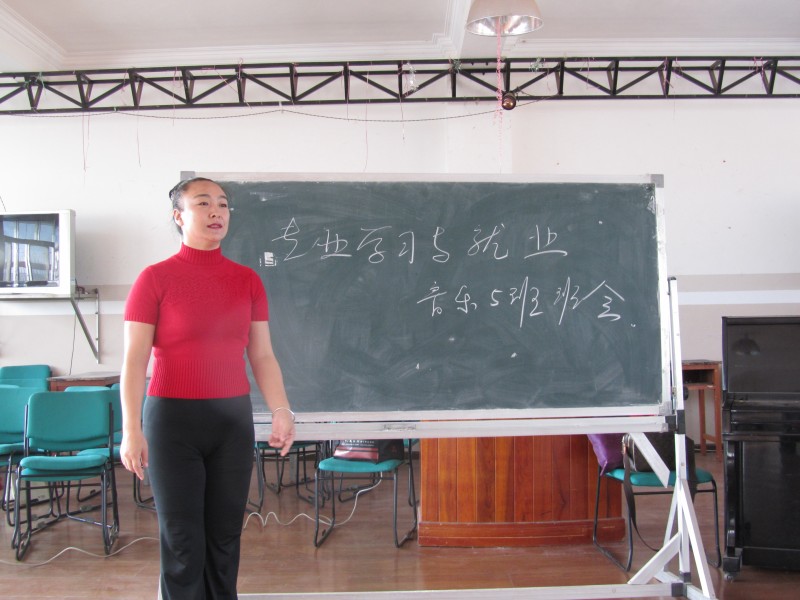 专业学习与就业
音乐5班班会